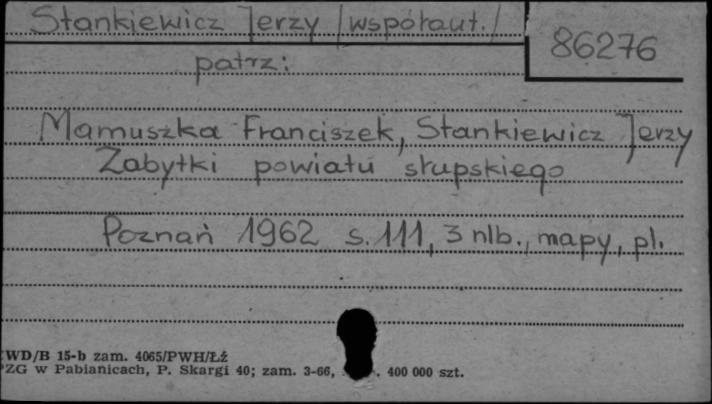 Stankiewicz Jerzy /współaut./
86276
patrz:
Mamuszka Franciszek, Stankiewicz Jerzy
Zabytki powiatu słupskiego
Poznań 1962 s. 111, 3 nlb., mapy, pl.
WD/B 15-b zam. 4065/PWH/Łź
PZG w Pabianicach, P. Skargi 40; zam. 3-66, 400 000 szt.